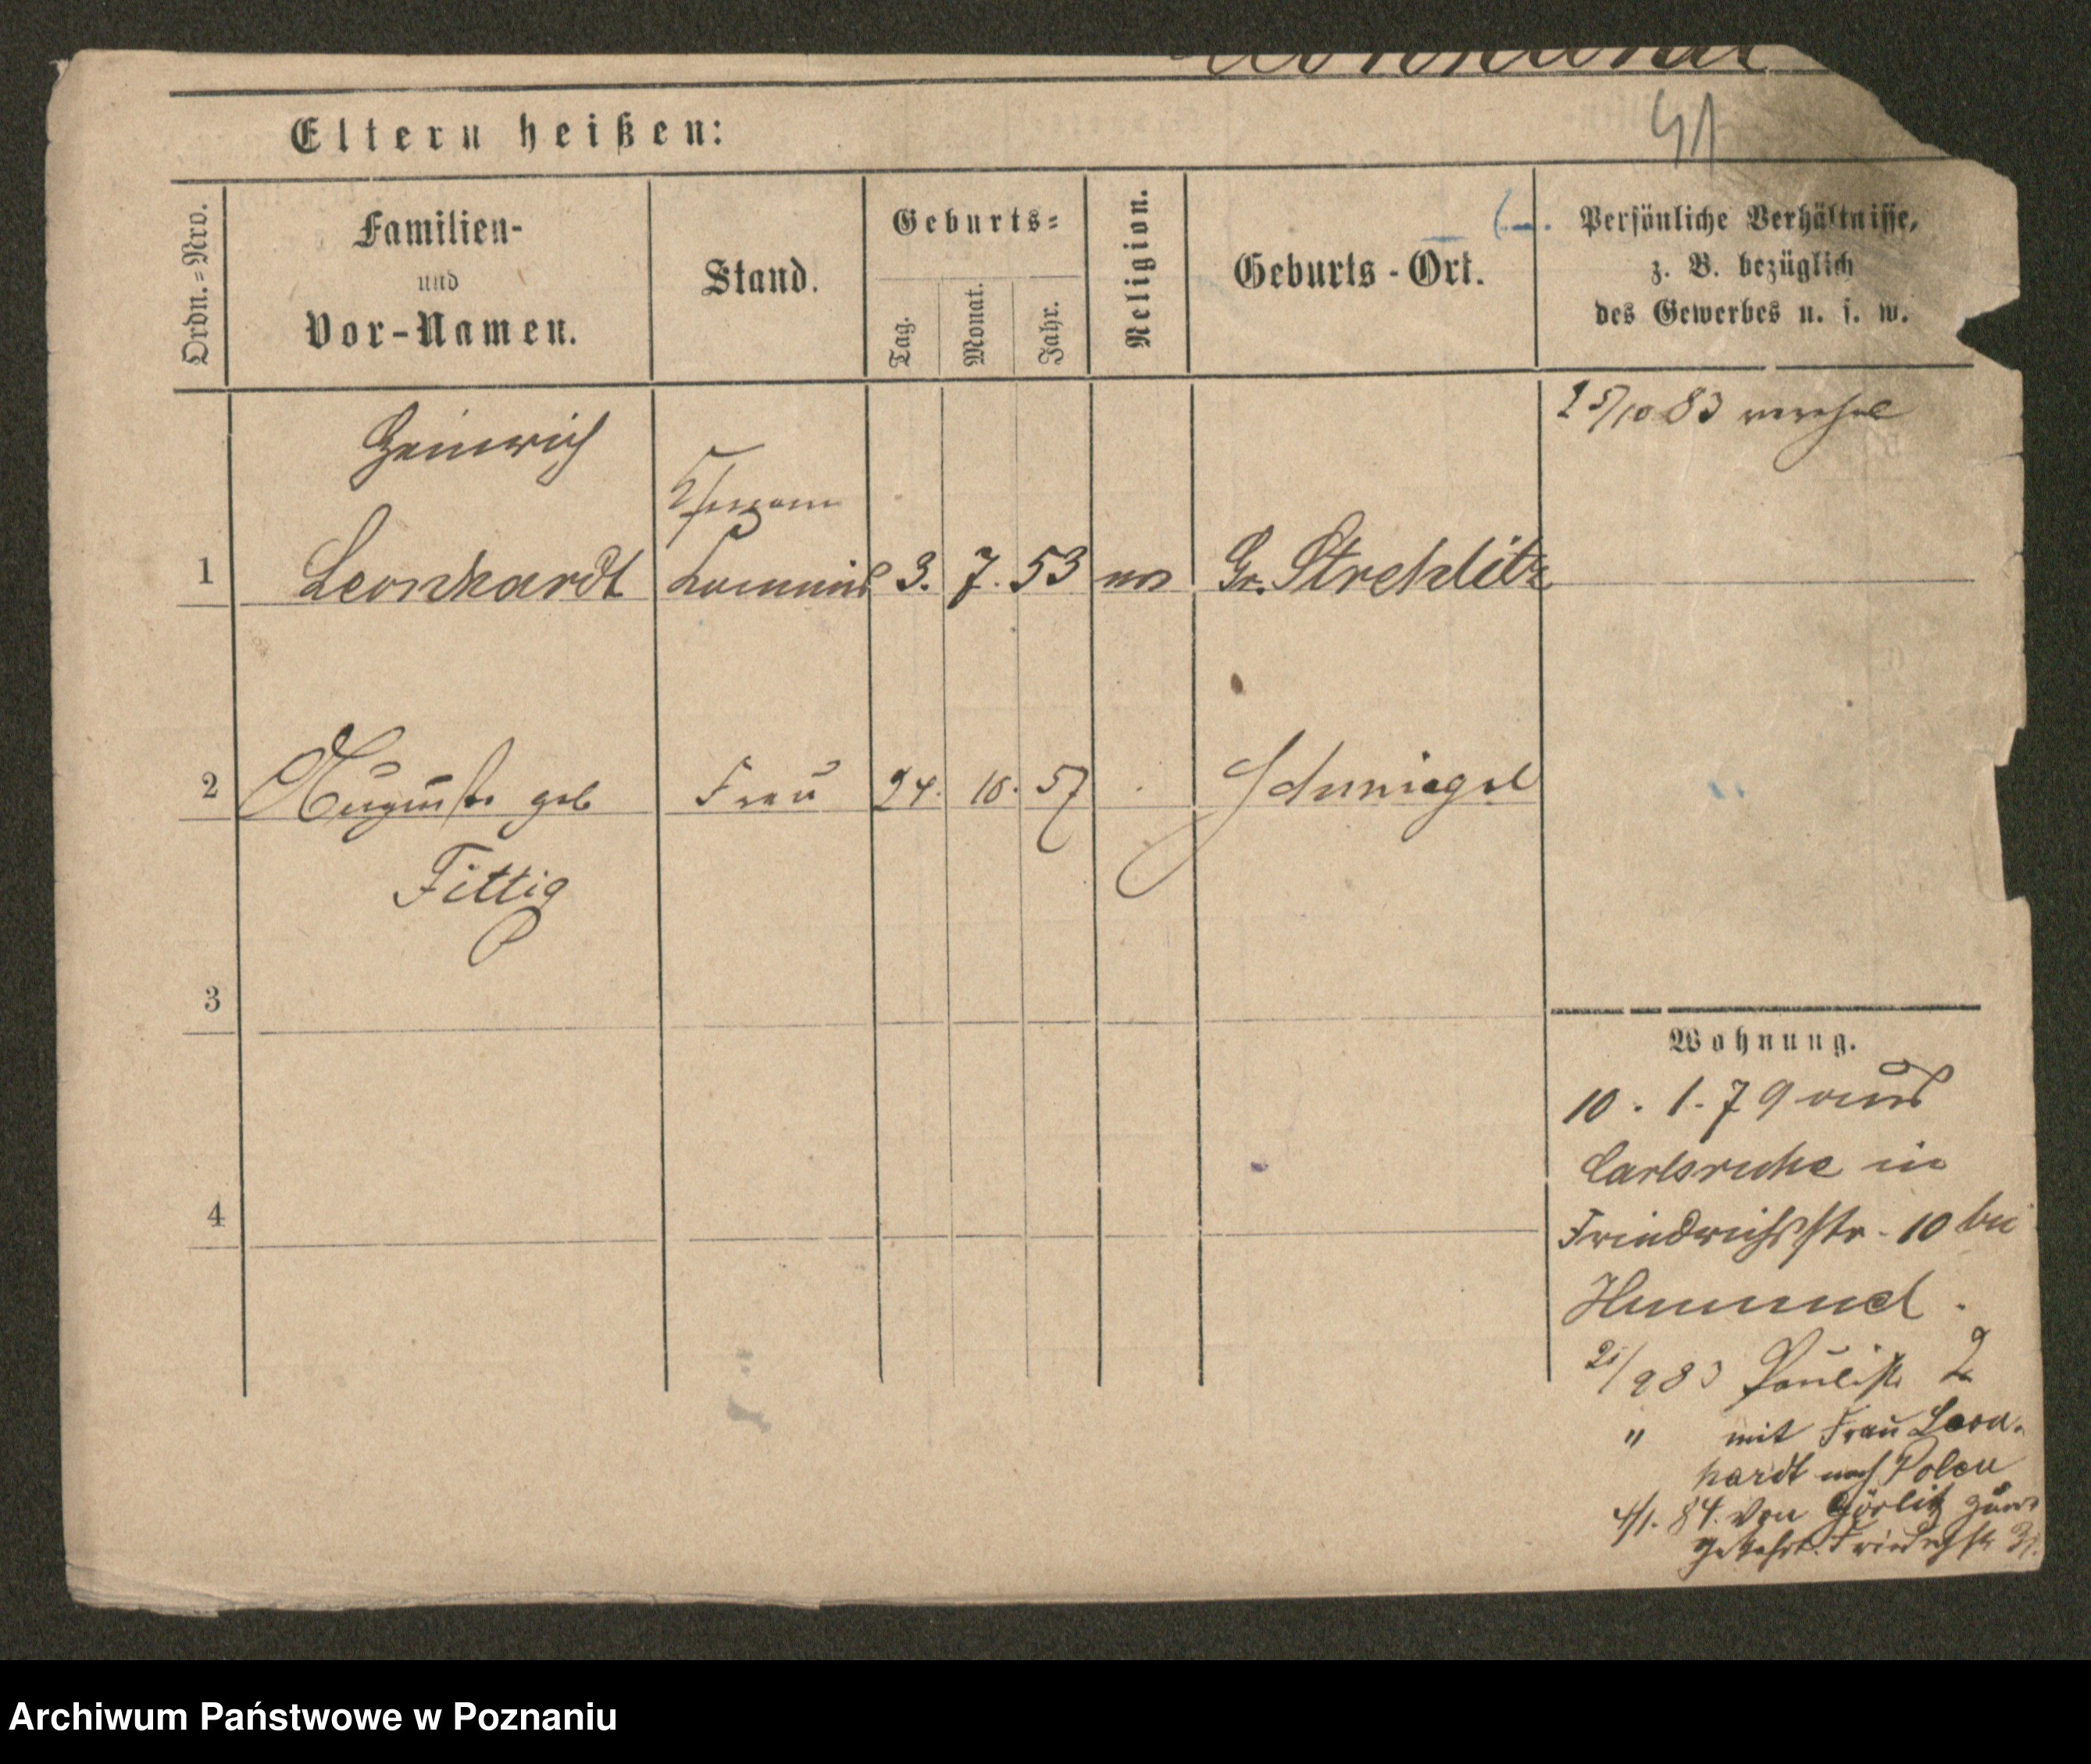 41
Eltern heißen:
Ordn.=Nro.
Familien-
und
Vor-Namen.
Stand.
Geburts=
Tag.
Monat.
Jahr.
Religion.
Geburts-Ort.
Persönliche Verhältnisse,
z. B. bezüglich
des Gewerbes u. s. w.
25/10 83 verehel
Heinrich
1 Leonhardt Commis 3. 7. 53 Gr. Strehlitz
2 Auguste geb Frau 24. 10. 57 Schmiegel
Fittig
3
4
Wohnung.
10. 1. 79 aus
Carlsruhe in
Friedrichsstr. 10 bei
Hummel.
21/9 83 Paulistr 2
" mit Frau Leon-
hardt nach Polen
4/1. 84. von Görlitz zurü
gekehrt. Friedrchstr
Archiwum Państwowe w Poznaniu